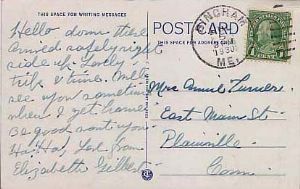 THIS SPACE FOR WRITING MESSAGES
Hello down there
Arrived safely right
side up. Lovely
trip & time. Will
see you sometime
when I get home
Be good wont you
Ha! Ha! Love from
Elizabeth Gilbert
POST CARD
THIS SPACE FOR ADDRESS ONLY
BINGHAM
1930
ME.
Mrs Annie Turners
East Main St
Plainville
Conn.